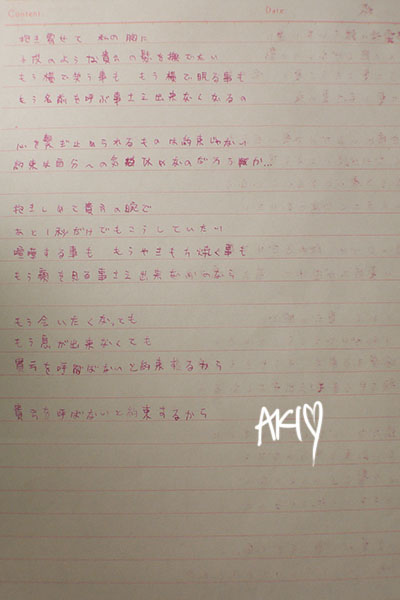 Content. Date
抱き寄せて 私の胸に
子供のような貴方の髪を撫でたい
もう横で笑う事も もう横で眠る事も
もう名前を呼ぶ事さえ出来なくなるの
心を繋ぎ止められるものは約束じゃない
約束は自分への なのだろうか…
抱きしめて貴方の腕で
あと1秒だけでもこうしていたい
喧嘩する事も もうやきもち焼く事も
もう顔を見る事さえ出来ないのなら
もう会いたくなっても
もう息が出来なくても
貴方を呼ばないと約束するから
貴方を呼ばないと約束するから
AKI♡